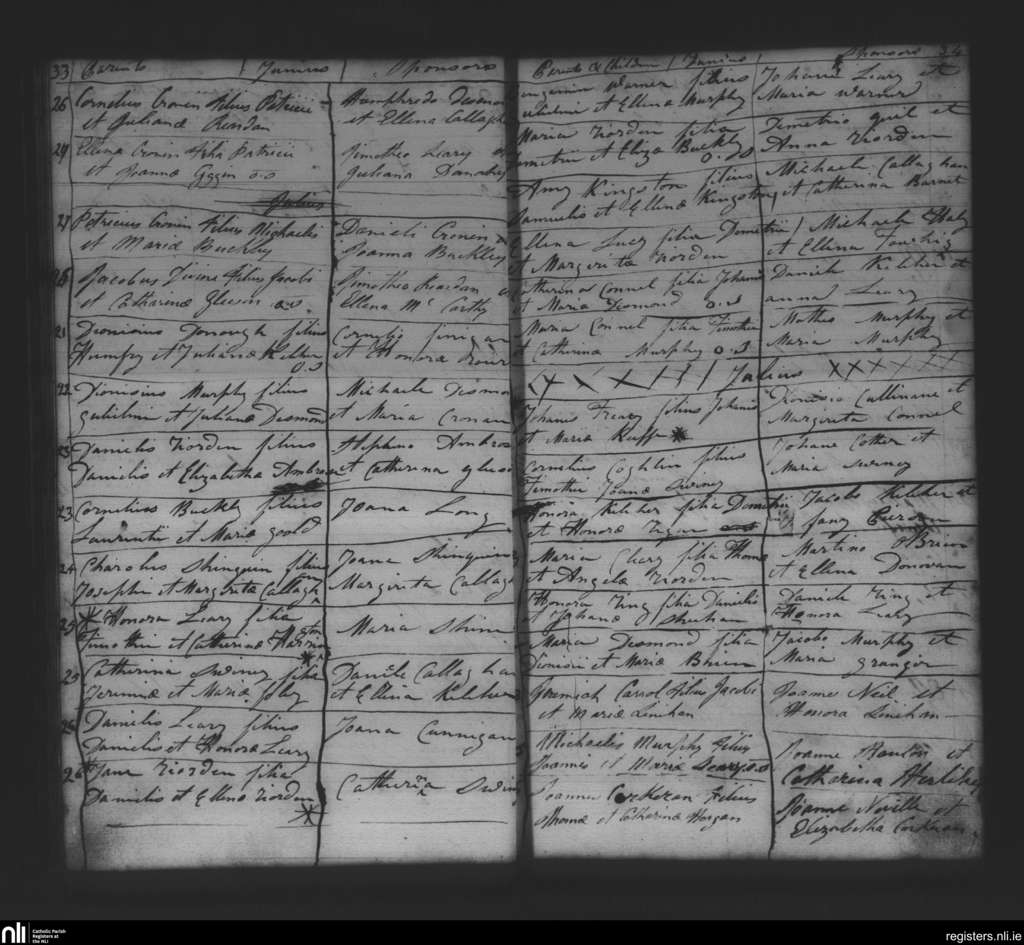 33 Parents Junius Sponsors
26 Cornelius Cronin filius Patricii
et Julianæ Reardan
Humphredo Desmond
et Ellena Callaghan
29 Ellena Cronin filia Patricii
et Joannæ Eggin 0.0
Timotheo Leary et
Juliana Danahy
Julius
27 Patricius Cronin filius Michaelis
et Mariæ Buckley
Danieli Cronin
Joanna Buckley
Jacobus Divine filius Jacobi
et Catharinæ Gleesin
Timotheo Reardan
Ellena Mc Carthy
21 Dionisius Donough filius
Humfry et Julianæ Keliher
0.3
Cornelio Finigan
et Honora
22 Dionisius Murphy filius
Gulielmi et Julianæ Desmond
Michaele Desmond
et Maria Cronan
23 Danielis Riorden filius
Danielis et Elizabetha Ambrose
Stephano Ambrose
et Catherina
23 Cornelius Buckly filius
Laurentii et Mariæ Goold
Joana Long
24 Charolus Shinquin filius
Josephi et Margarita Callaghan
Joana Shinquin
Margarita Callaghan
25 Honora Leary filia
Timothii et Catherinæ
Maria Shine
25 Catherina Swiney filia
Jeremiæ et Mariæ Foley
Daniele Callaghan
et Ellena Keleher
26 Danielis Leary filius
Danielis et Honora Leary
Joana Cunnigan
26 Jane Riorden filia
Danielis et Ellena Riorden
Catherina Swiney
Parents & Children Junius Sponsors 34
Benjamin Warner filius
Gulielmi et Ellena Murphy
Johane Leary et
Maria Warner
Maria Riorden filia
Demetrii et Eliza Buckly
Demetrio Quil et
Anna Riorden
Amy Kingston filius
Samuelis et Ellenæ Kingston
Michaele Callaghan
et Catherina Barnet
Ellena Lucy filia Demetrii
et Margeritæ Riorden
Michaele Haly
et Ellena
Catherina Connel filia Johanis
et Maria Desmond 0.3
Daniele Keleher et
anna Leary
Maria Connel filia Timothei
et Catherinæ Murphy 0.3
Matheo Murphy et
Maria Murphy
Julius
Johanis Treacy filius Johanis
et Mariæ
Dionisio Cullinane et
Margerita Connel
Cornelius Coghlin filius
Timothii Joanæ Swiney
Johane Cotter et
Maria Swiney
Honora Kelcher filia Demetrii
et Honoræ
Jacobo Kelcher et
Maria Cleary filia Thomæ
et Angelæ Riorden
Martino O'Brien
et Ellena Donovan
Honora Ring filia Danielis
et Johanæ Sheehan
Daniele Ring et
Honora Leary
Maria Desmond filia
Dionisii et Mariæ Brien
Jacobo Murphy et
Maria Granger
Jeremiah Carrol filius Jacobi
et Mariæ Linehan
Joanne Neil et
Honora Linehan
Michaelis Murphy filius
Joannis et Mariæ Leary
Joanne et
Catharina Herlihy
Joannes Corkeran filius
Thomæ et Catharinæ Horgan
Joanne Neville et
Elizabetha Corkeran
nli
Catholic Parish
Registers at
the NLI
registers.nli.ie